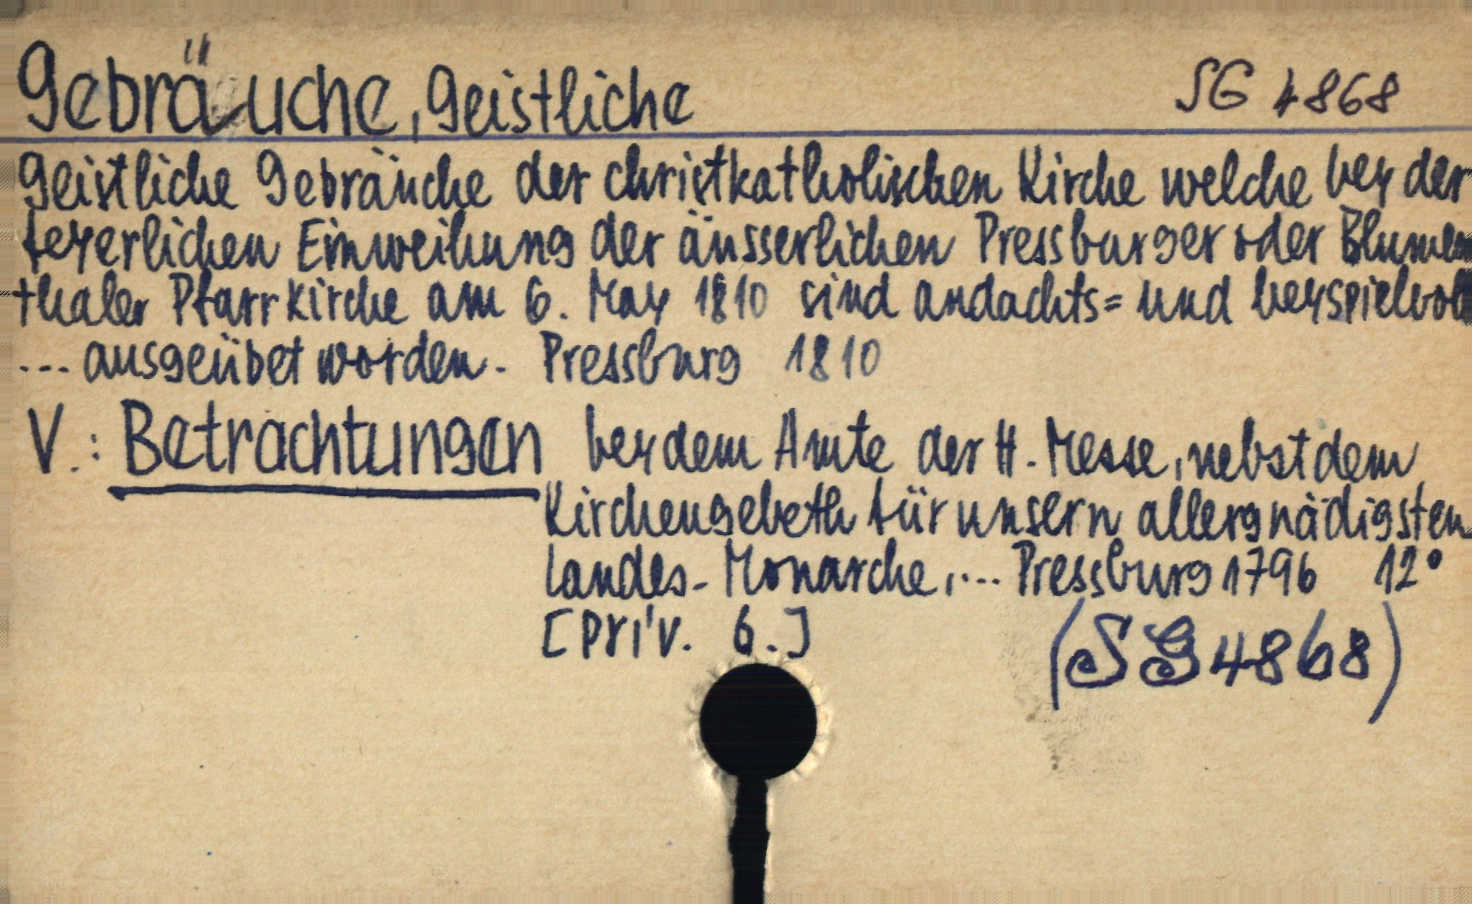 Gebräuche, Geistliche SG 4868
Geistliche Gebräuche der christkatholischen Kirche welche bey der
feyerlichen Einweihung der äusserlichen Pressburger oder Blumen
thaler Pfarrkirche am 6. May 1810 sind andachts= und beyspielvoll
... ausgeübet worden. Pressburg 1810
V.: Betrachtungen bey dem Amte der H. Messe, nebst dem
Kirchengebeth für unsern allergnädigsten
Landes-Monarche,... Pressburg 1796 12°
[priv. 6.] (SG 4868)